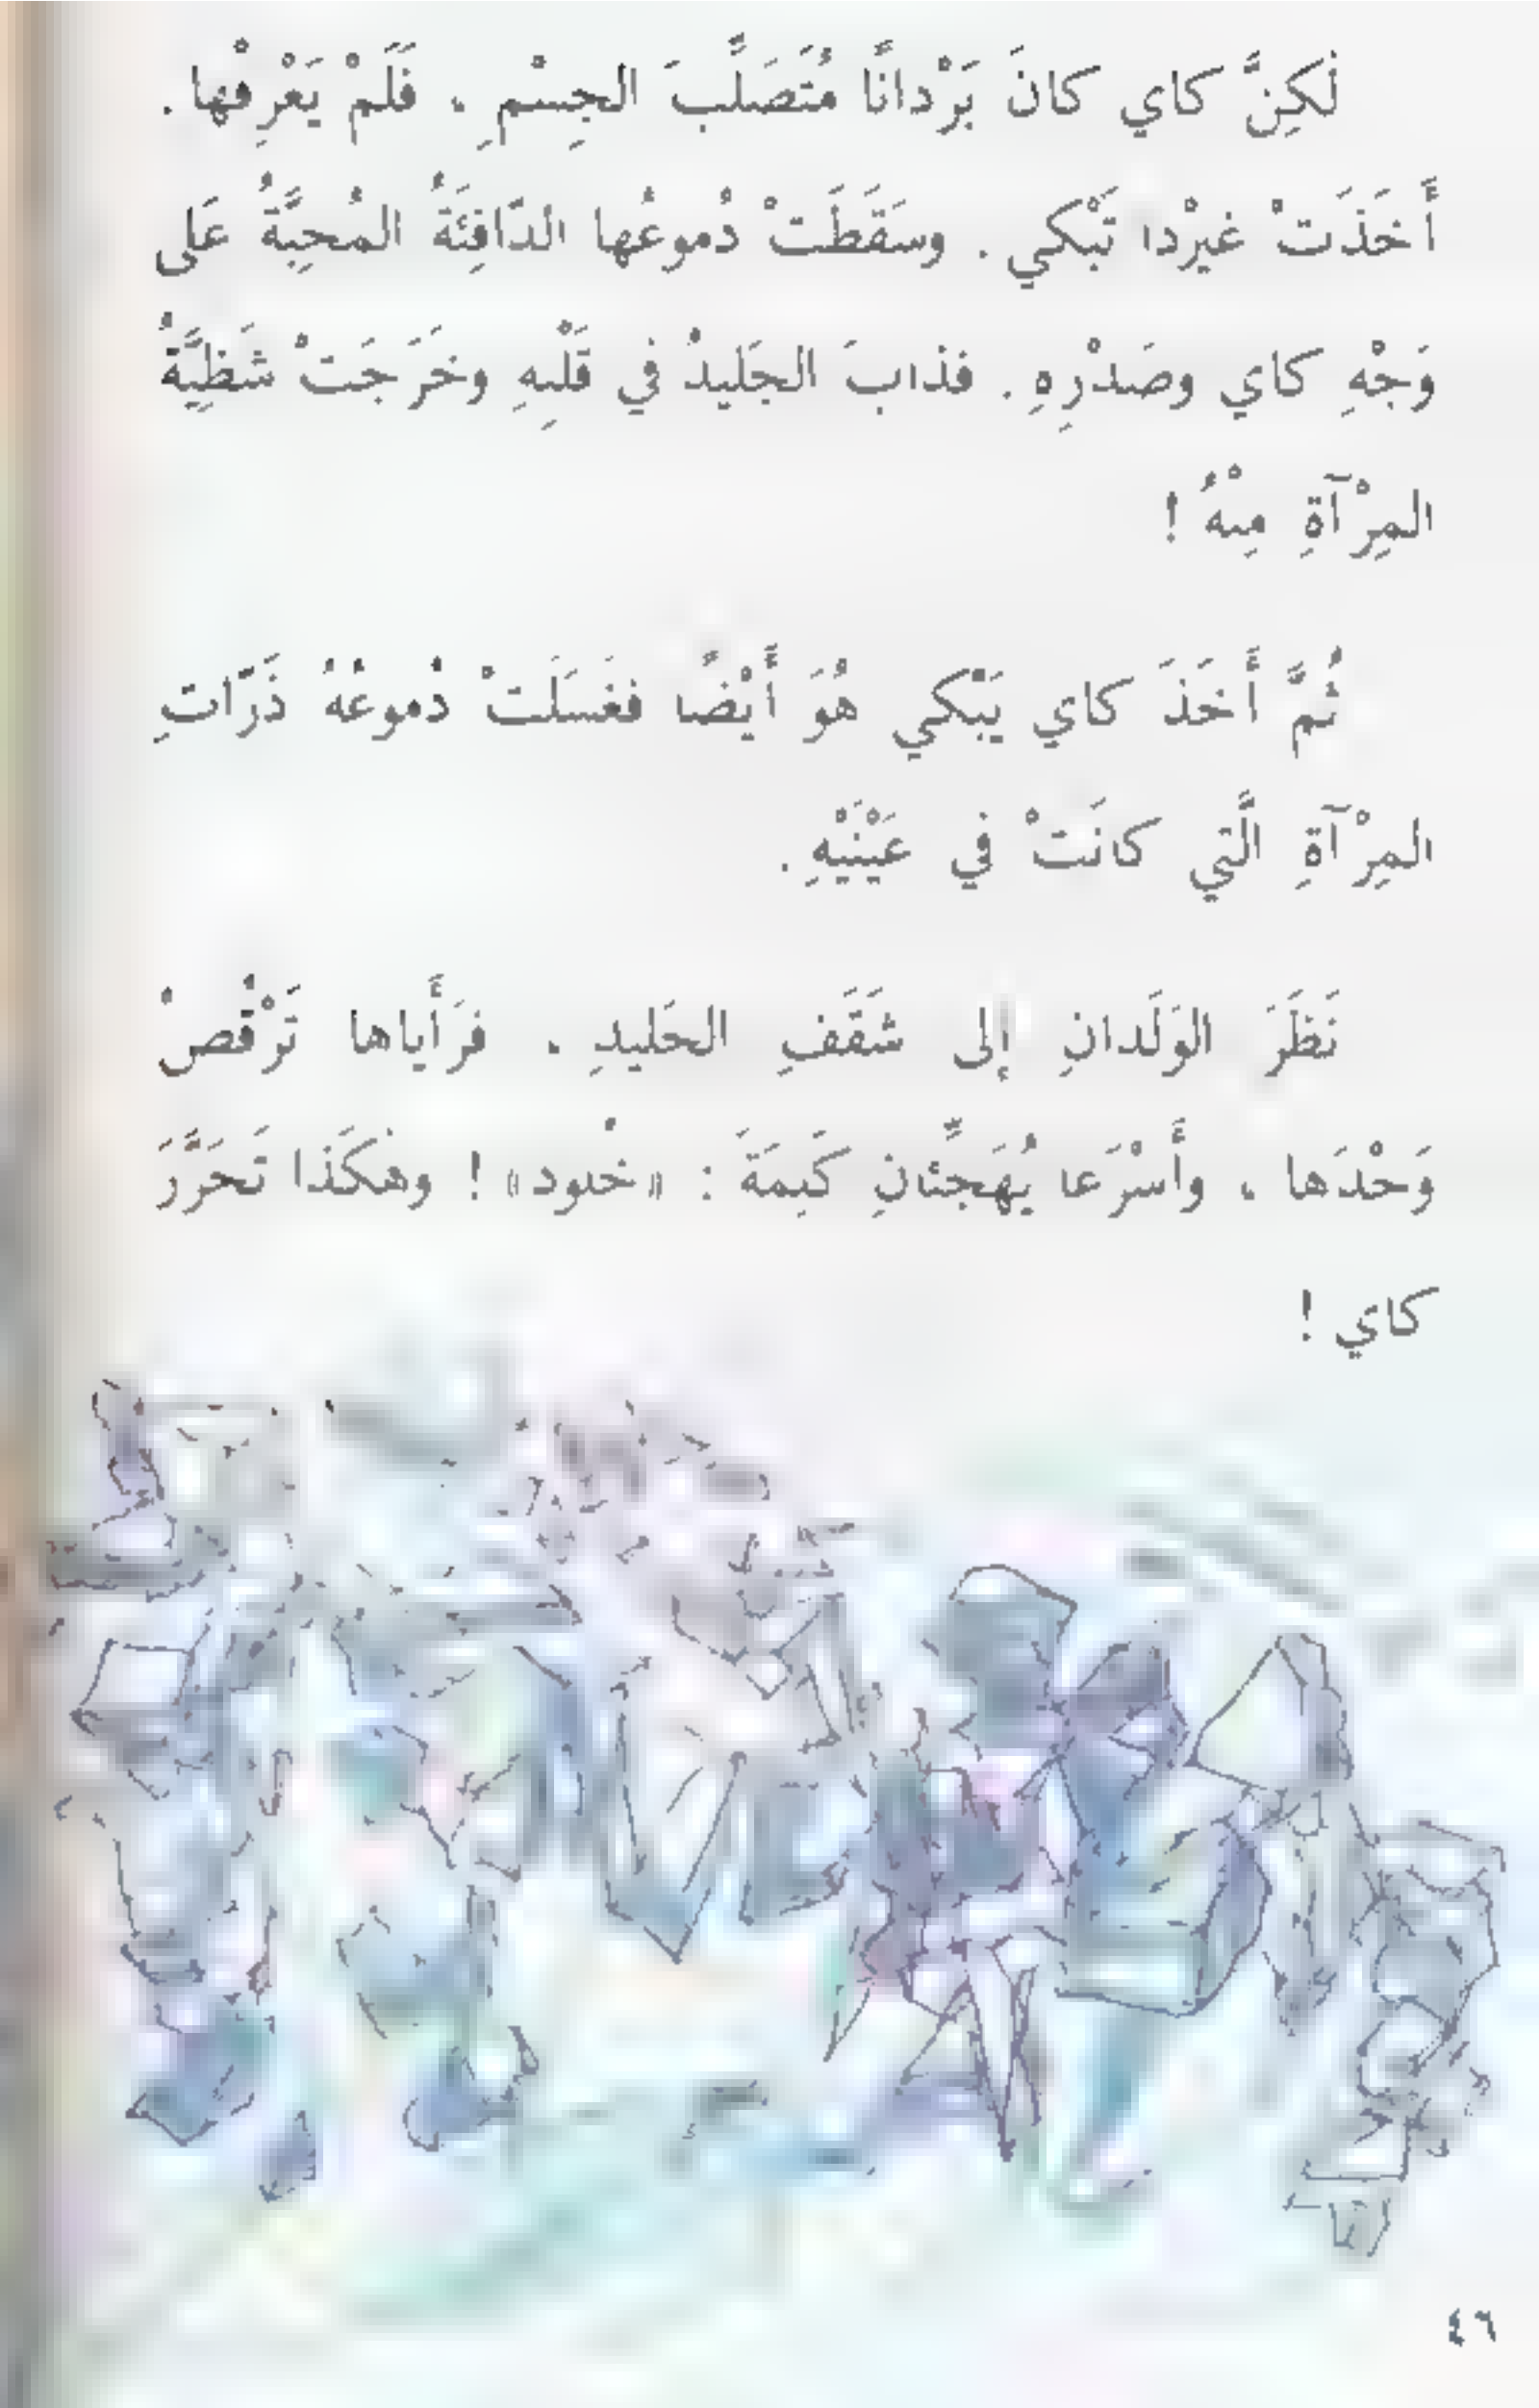 لٰكِنَّ كاي كانَ بَرْدانًا مُتَصَلِّبَ الجِسْمِ ، فَلَمْ يَعْرِفْها .
أَخَذَتْ غيرْدا تَبْكي . وسَقَطَتْ دُموعُها الدّافِئَةُ المُحِبَّةُ عَلى
وَجْهِ كاي وصَدْرِهِ . فذابَ الجَليدُ في قَلْبِهِ وخَرَجَتْ شَظِيَّةُ
المِرْآةِ مِنْهُ !
ثُمَّ أَخَذَ كاي يَبْكي هُوَ أَيْضًا فغَسَلَتْ دُموعُهُ ذَرّاتِ
المِرْآةِ الَّتي كانَتْ في عَيْنَيْهِ .
نَظَرَ الوَلَدانِ إلى شَقَفِ الجَليدِ ، فرَأَياها تَرْقُصُ
وَحْدَها ، وأَسْرَعا يُهَجِّئانِ كَلِمَةَ : «خُلود» ! وهٰكَذا تَحَرَّرَ
كاي !
٤٦